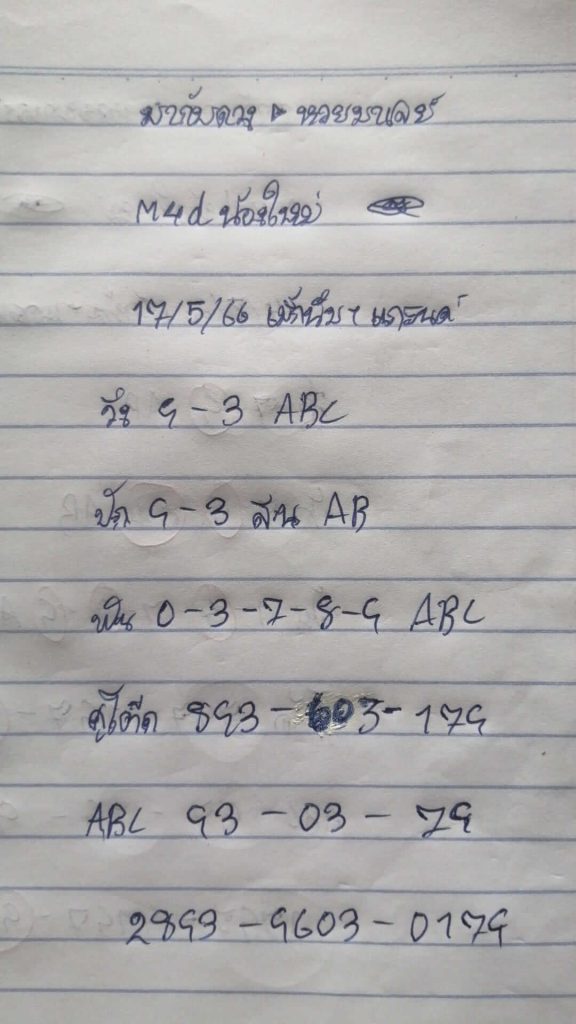 มากับดวง ▶ หวยมาเลย์
M4d น้องใหม่
17/5/66 แกรนด์
วิ่ง 9-3 ABC
ปัก 9-3 สน AB
ฟัน 0-3-7-8-9 ABC
893-603-179
ABC 93-03-79
2893-9603-0179